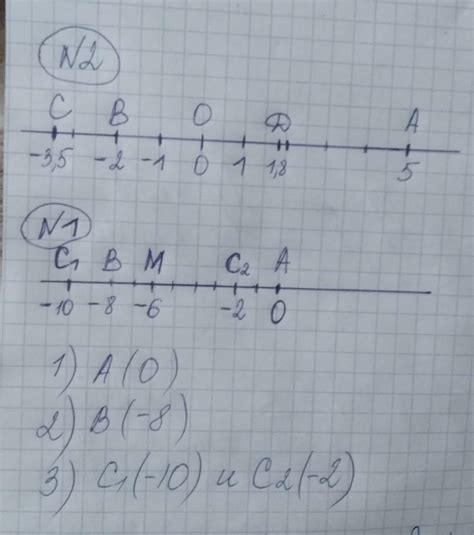 N2
C B O D A
-3,5 -2 -1 0 1 1,8 5
N1
C1 B M C2 A
-10 -8 -6 -2 0
1) A(0)
2) B(-8)
3) C1(-10) и C2(-2)